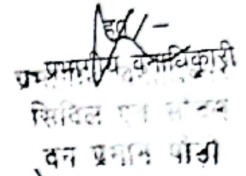 ह0/-
प्रभागीय वनाधिकारी
सिविल एवं सोयम
वन प्रभाग पौड़ी